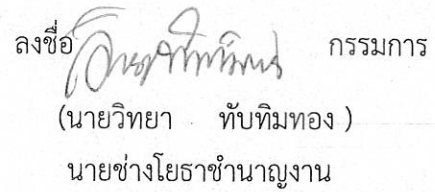 ลงชื่อ กรรมการ
(นายวิทยา ทับทิมทอง )
นายช่างโยธาชำนาญงาน